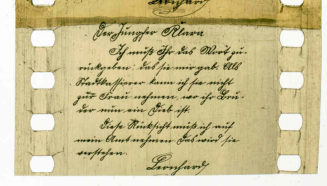 Leonhard
Der Jungfer Klara
Ich muß Ihr das Wort zu-
rückgeben, das sie mir gab. Als
Stadtkassierer kann ich sie nicht
zur Frau nehmen, wo ihr Bru-
der nun ein Dieb ist.
Diese Rücksicht muß ich auf
mein Amt nehmen. Das wird sie
verstehen.
Leonhard